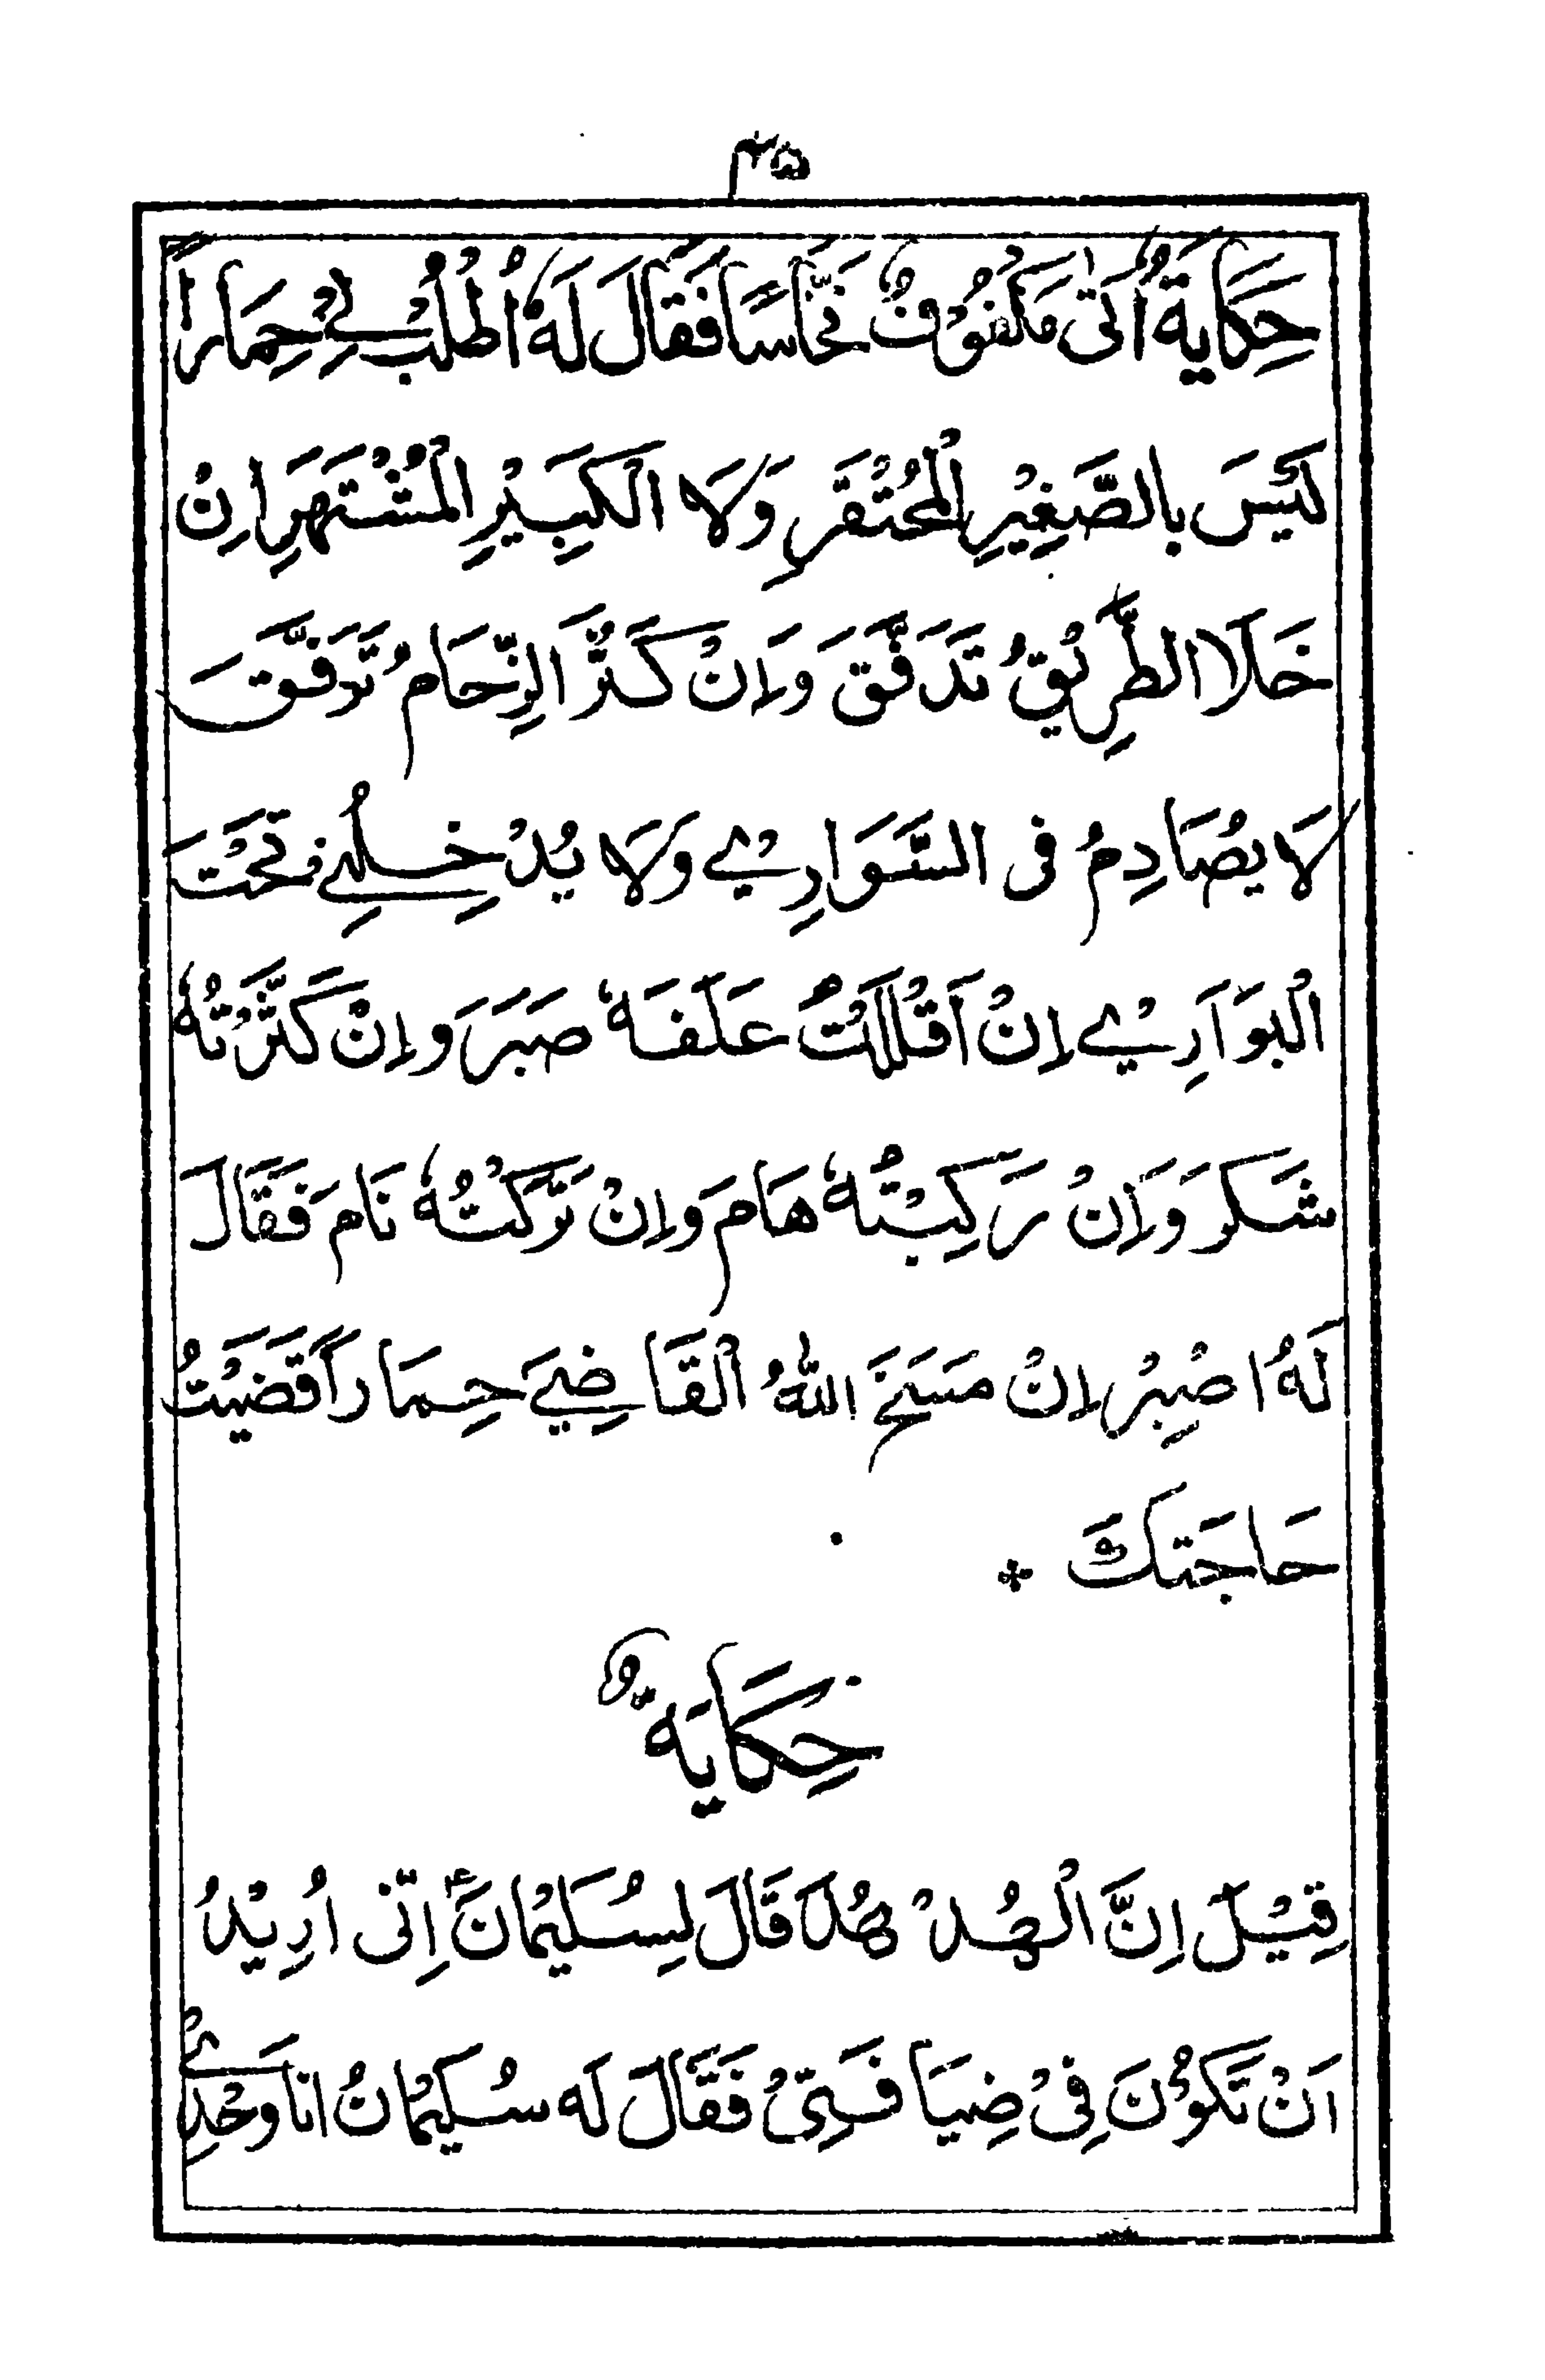 ۴۵
حِكَايَةٌ أَتَى مَكْفُوْفٌ نَخَّاسًا فَقَالَ لَهٗ اُطْلُبْ لِيْ حِمَارًا
لَيْسَ بِالصَّغِيْرِ الْمُحْتَقَرِ وَلَا الْكَبِيْرِ الْمُشْتَهِرِ اِنْ
خَلَا الطَّرِيْقُ تَدَفَّقَ وَاِنْ كَثُرَ الزِّحَامُ تَرَفَّقَ
لَا يُصَادِمُ فِى السَّوَارِيْ وَلَا يُدْخِلُنِيْ تَحْتَ
الْبَوَارِيْ اِنْ اَقْلَلْتُ عَلَفَهٗ صَبَرَ وَاِنْ كَثَّرْتُهٗ
شَكَرَ وَاِنْ رَكِبْتُهٗ هَامَ وَاِنْ تَرَكْتُهٗ نَامَ فَقَالَ
لَهُ اصْبِرْ اِنْ مَسَخَ اللّٰهُ الْقَاضِيَ حِمَارًا قَضَيْتُ
حَاجَتَكَ *
حِكَايَةٌ
قِيْلَ اِنَّ الْهُدْهُدَ قَالَ لِسُلَيْمَانَ ؑ اِنِّى اُرِيْدُ
اَنْ تَكُوْنَ فِىْ ضِيَافَتِىْ فَقَالَ لَه سُلَيْمَانُ اَنَا وَحْدِيْ